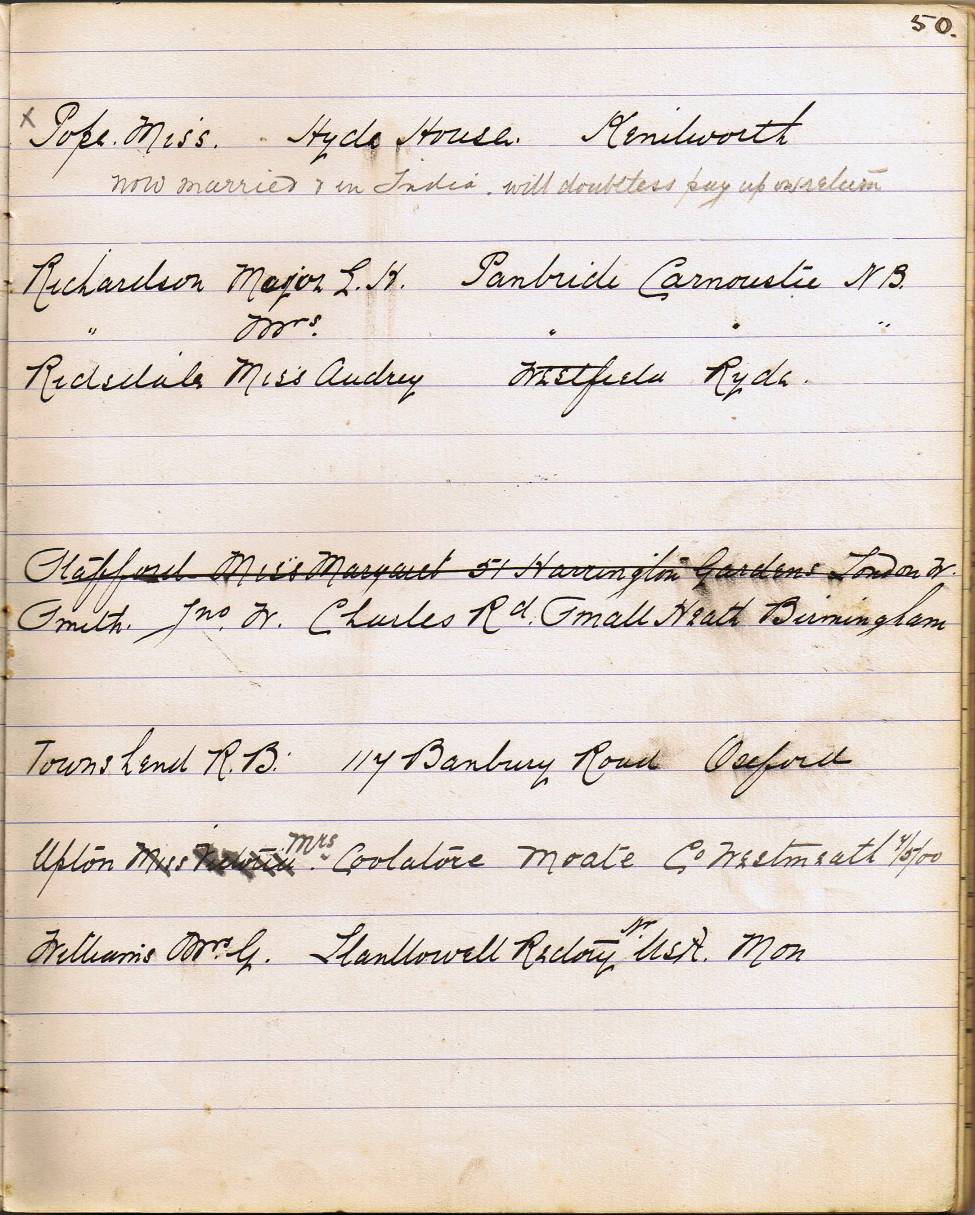 50.
x Pope. Miss. Hyde House. Kenilworth
now married & in India. will doubtless pay up on return
Richardson Major L. H. Panbride Carnoustie N B.
" Mrs. " " "
Ridsdale Miss Audrey Westfield Ryde.
Stafford Miss Margaret 51 Harrington Gardens London W.
Smith. Jno. W. Charles Rd. Small Heath Birmingham
Townshend R. B. 117 Banbury Road Oxford
Upton Miss Mrs. Coolatore Moate Co Westmeath 4/5/00
Williams Mrs G. Llanllowell Rectory Nr. Usk. Mon